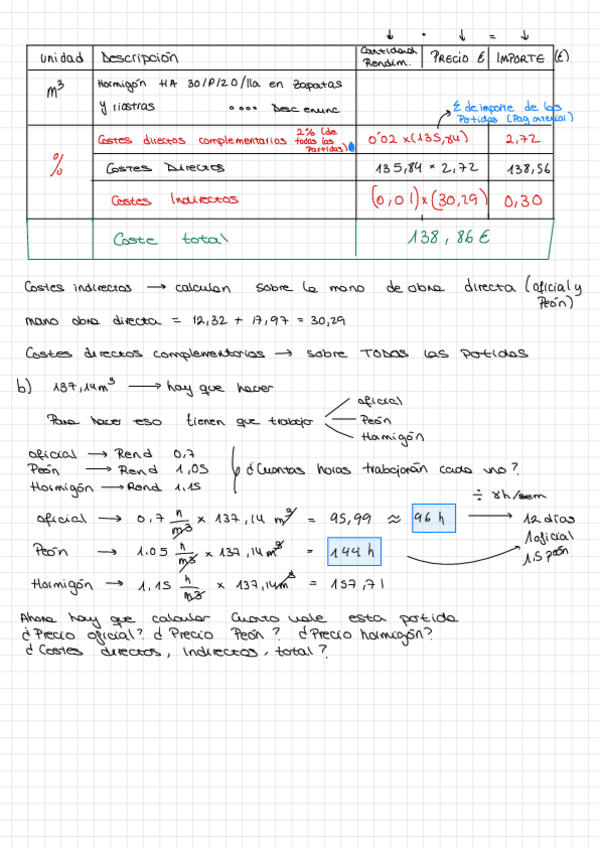 Unidad Descripción Cantidad Rendim. PRECIO € IMPORTE (€)
m³ Hormigón HA 30/P/20/IIa en zapatas
y riostras .... Desc enunc.
Σ de importe de las
Partidas (Pag anterior)
% Costes directos complementarios 2% (de todas las partidas) 0'02 x (135,84) 2,72
Costes Directos 135,84 + 2,72 138,56
Costes Indirectos (0,01)x(30,29) 0,30
Coste total 138,86 €
Costes indirectos → calculan sobre la mano de obra directa (oficial y
Peón)
mano obra directa = 12,32 + 17,97 = 30,29
Costes directos complementarios → sobre TODAS las partidas
b) 137,14 m³ → hay que hacer
Para hacer eso tienen que trabajar oficial
Peón
Hormigón
oficial → Rend 0,7
Peón → Rend 1,05
Hormigón → Rend 1,15
¿Cuantas horas trabajarán cada uno?
÷ 8h/sem
oficial → 0,7 h/m³ x 137,14 m³ = 95,99 ≈ 96 h → 12 días
1 oficial
1,5 peón
Peón → 1.05 h/m³ x 137,14 m³ = 144 h
Hormigón → 1,15 h/m³ x 137,14 m³ = 157,71
Ahora hay que calcular Cuanto vale esta partida
¿Precio oficial? ¿Precio Peón? ¿Precio hormigón?
¿Costes directos, Indirectos, total?